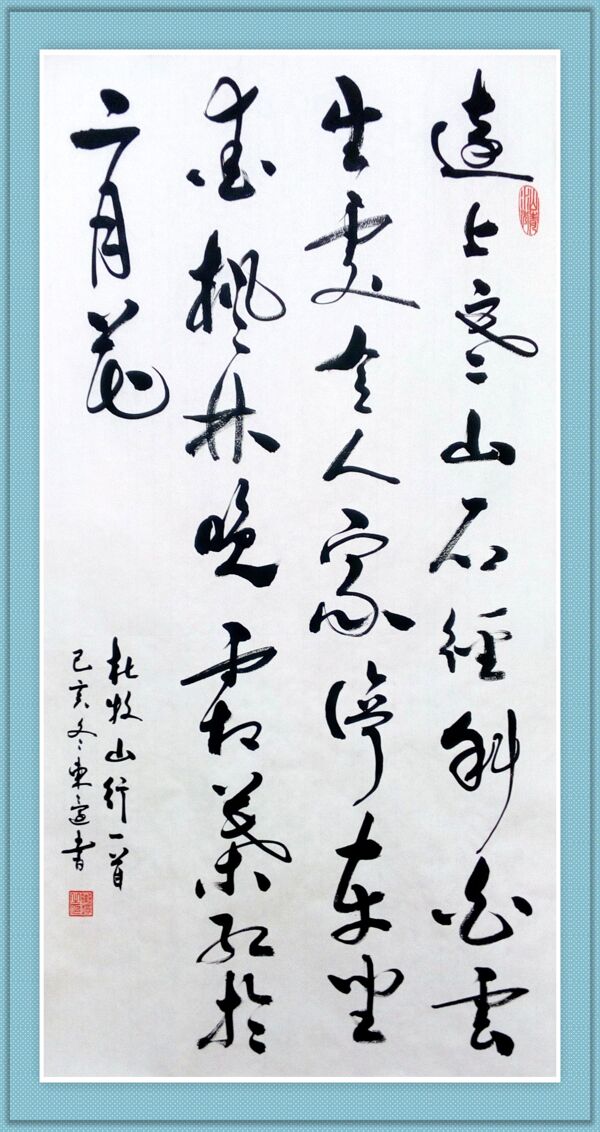 遠上寒山石徑斜白雲
生處有人家停車坐
愛楓林晚霜葉紅於
二月花
杜牧山行一首
己亥冬東書